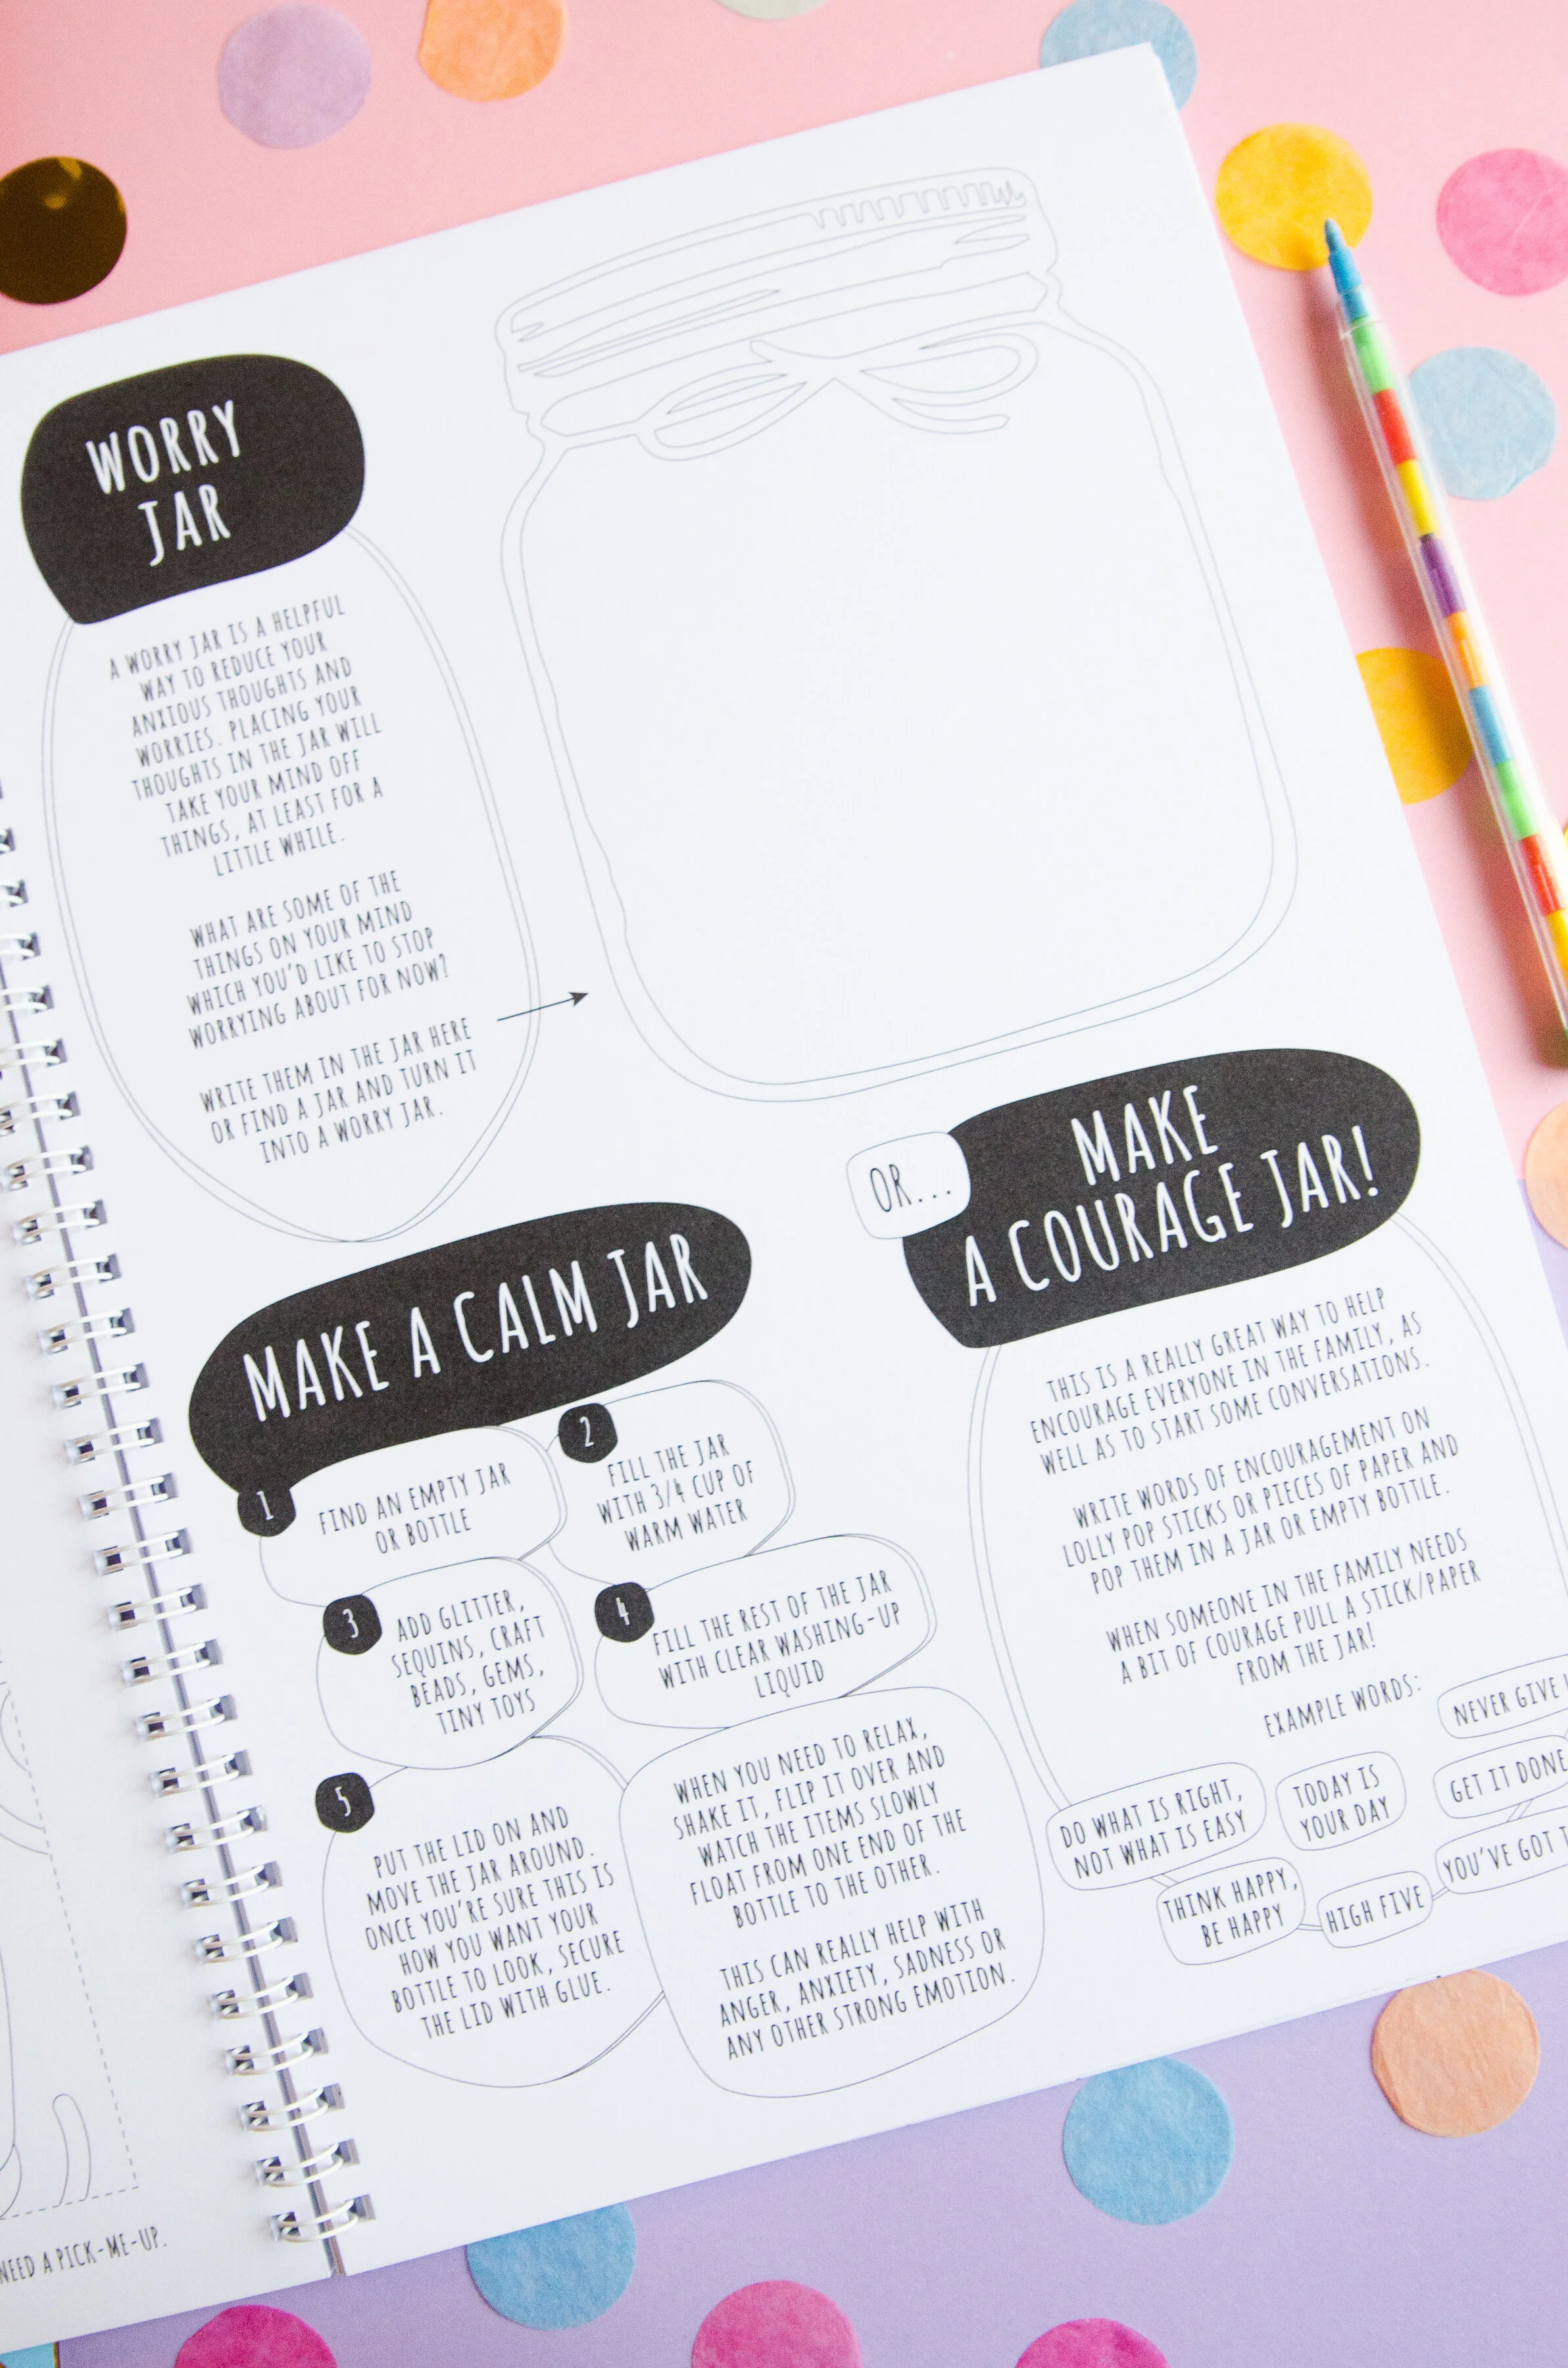 WORRY
JAR
A WORRY JAR IS A HELPFUL
WAY TO REDUCE YOUR
ANXIOUS THOUGHTS AND
WORRIES. PLACING YOUR
THOUGHTS IN THE JAR WILL
TAKE YOUR MIND OFF
THINGS, AT LEAST FOR A
LITTLE WHILE.
WHAT ARE SOME OF THE
THINGS ON YOUR MIND
WHICH YOU'D LIKE TO STOP
WORRYING ABOUT FOR NOW?
WRITE THEM IN THE JAR HERE
OR FIND A JAR AND TURN IT
INTO A WORRY JAR.
MAKE A CALM JAR
1
FIND AN EMPTY JAR
OR BOTTLE
2
FILL THE JAR
WITH 3/4 CUP OF
WARM WATER
3
ADD GLITTER,
SEQUINS, CRAFT
BEADS, GEMS,
TINY TOYS
4
FILL THE REST OF THE JAR
WITH CLEAR WASHING-UP
LIQUID
5
PUT THE LID ON AND
MOVE THE JAR AROUND.
ONCE YOU'RE SURE THIS IS
HOW YOU WANT YOUR
BOTTLE TO LOOK, SECURE
THE LID WITH GLUE.
WHEN YOU NEED TO RELAX,
SHAKE IT, FLIP IT OVER AND
WATCH THE ITEMS SLOWLY
FLOAT FROM ONE END OF THE
BOTTLE TO THE OTHER.
THIS CAN REALLY HELP WITH
ANGER, ANXIETY, SADNESS OR
ANY OTHER STRONG EMOTION.
OR...
MAKE
A COURAGE JAR!
THIS IS A REALLY GREAT WAY TO HELP
ENCOURAGE EVERYONE IN THE FAMILY, AS
WELL AS TO START SOME CONVERSATIONS.
WRITE WORDS OF ENCOURAGEMENT ON
LOLLY POP STICKS OR PIECES OF PAPER AND
POP THEM IN A JAR OR EMPTY BOTTLE.
WHEN SOMEONE IN THE FAMILY NEEDS
A BIT OF COURAGE PULL A STICK/PAPER
FROM THE JAR!
EXAMPLE WORDS:
NEVER GIVE
DO WHAT IS RIGHT,
NOT WHAT IS EASY
TODAY IS
YOUR DAY
GET IT DONE
THINK HAPPY,
BE HAPPY
HIGH FIVE
YOU'VE GOT
NEED A PICK-ME-UP.